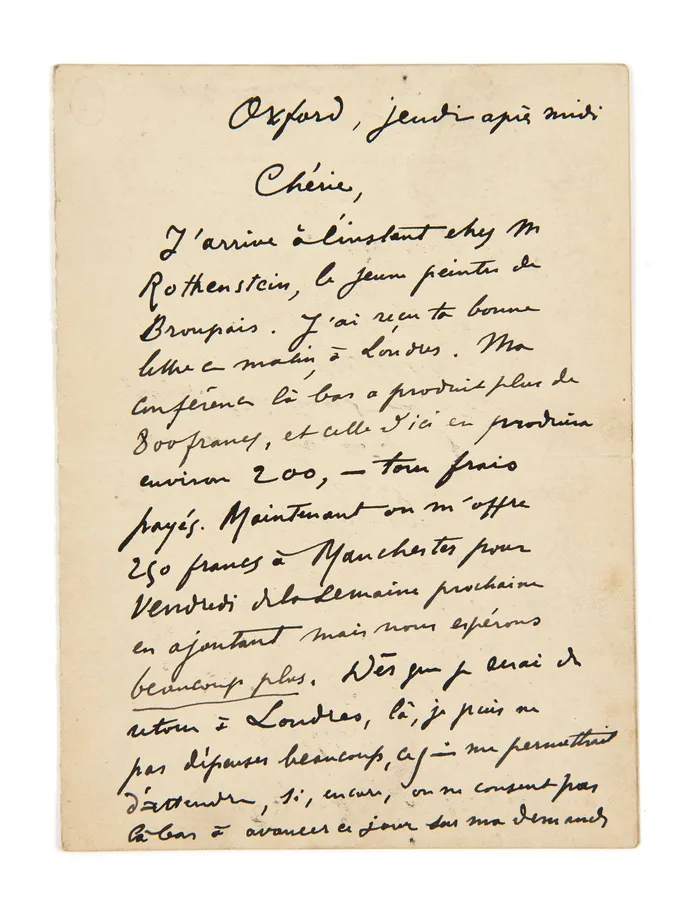 Oxford, jeudi après midi
Chérie,
J'arrive à l'instant chez M
Rothenstein, le jeune peintre de
J'ai reçu ta bonne
lettre ce matin, à Londres. Ma
conférence là bas a produit plus de
800 francs, et celle d'ici en produira
environ 200, — tous frais
payés. Maintenant on m'offre
250 francs à Manchester pour
Vendredi de la semaine prochaine
en ajoutant mais nous espérons
beaucoup plus. Dès que je serai de
retour à Londres, là, je puis ne
pas dépenser beaucoup, ce qui me permettrait
d'attendre, si, encore, on ne consent pas
là bas à avancer ce jour sur ma demande